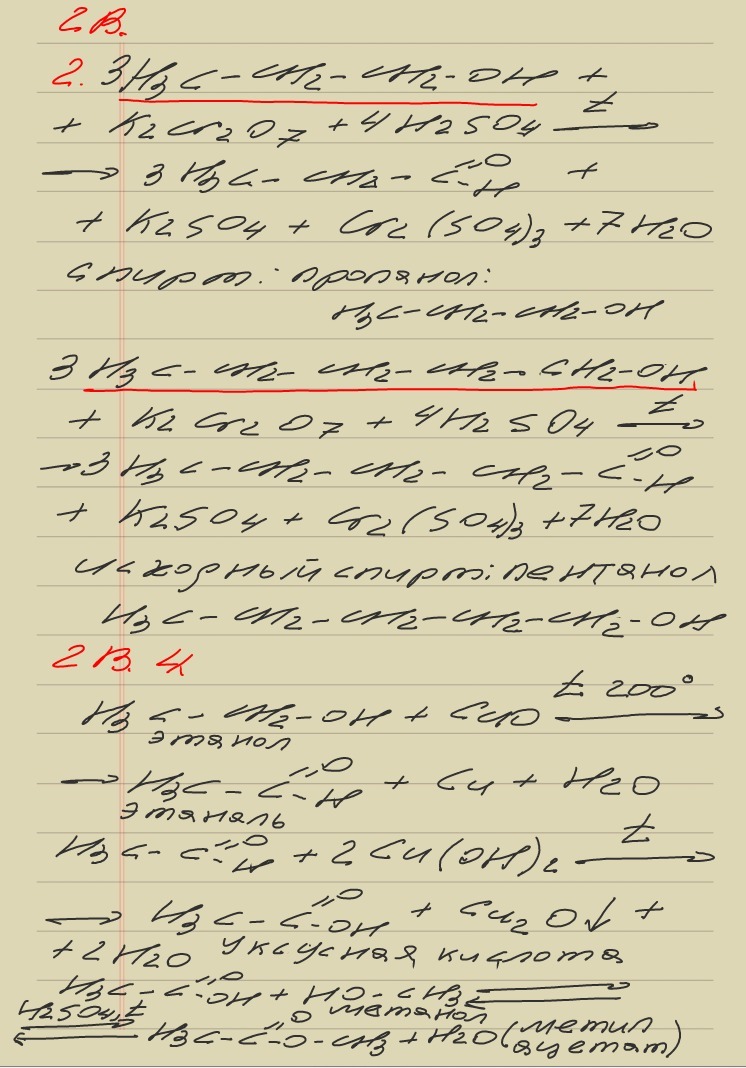 2 В.
2. 3H3C-CH2-CH2-OH +
+ K2Cr2O7 + 4H2SO4 t→
→ 3 H3C-CH2-C=O-H +
+ K2SO4 + Cr2(SO4)3 + 7H2O
Спирт: пропанол:
H3C-CH2-CH2-OH
3 H3C-CH2-CH2-CH2-CH2-OH
+ K2Cr2O7 + 4H2SO4 t→
→3 H3C-CH2-CH2-CH2-C=O-H
+ K2SO4 + Cr2(SO4)3 + 7H2O
исходный спирт: пентанол
H3C-CH2-CH2-CH2-CH2-OH
2 В. 4
H3C-CH2-OH + CuO t 200°→
этанол
→ H3C-C=O-H + Cu + H2O
этаналь
H3C-C=O-H + 2Cu(OH)2 t→
→ H3C-C=O-OH + Cu2O↓ +
+ 2H2O Уксусная кислота
H3C-C=O-OH + HO-CH3 ⇄
метанол
H2SO4, t ⇄ H3C-C=O-O-CH3 + H2O (метил ацетат)